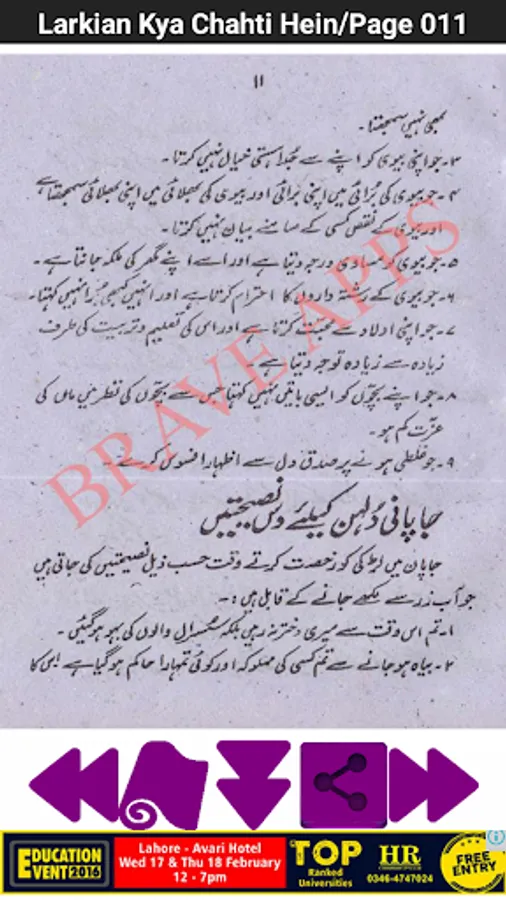 Larkian Kya Chahti Hein/Page 011
۱۱
بھی نہیں سمجھتا۔
۳۔ جو اپنی بیوی کو اپنے سے جُدا ہستی خیال نہیں کرتا۔
۴۔ جو بیوی کی بُرائی میں اپنی بُرائی اور بیوی کی بھلائی میں اپنی بھلائی سمجھتا ہے
اور بیوی کے نقص کسی کے سامنے بیان نہیں کرتا۔
۵۔ جو بیوی کو مساوی درجہ دیتا ہے اور اسے اپنے گھر کی ملکہ جانتا ہے۔
۶۔ جو بیوی کے رشتہ داروں کا احترام کرتا ہے اور انہیں کبھی بُرا نہیں کہتا۔
۷۔ جو اپنی اولاد سے محبت کرتا ہے اور اس کی تعلیم و تربیت کی طرف
زیادہ سے زیادہ توجہ دیتا ہے۔
۸۔ جو اپنے بچّوں کو ایسی باتیں نہیں کہتا جس سے بچّوں کی نظر میں ماں کی
عزّت کم ہو۔
۹۔ جو غلطی ہونے پر صدق دل سے اظہار افسوس کرے۔
BRAVE APPS
جاپانی دُلہن کیلئے دس نصیحتیں
جاپان میں لڑکی کو رخصت کرتے وقت حسب ذیل نصیحتیں کی جاتی ہیں
جو آب زر سے لکھے جانے کے قابل ہیں:۔
۱۔ تم اس وقت سے میری دختر نہ رہیں بلکہ سُسرال والوں کی بہو ہو گئیں۔
۲۔ بیاہ ہو جانے سے تم کسی کی مملوکہ اور کوئی تمہارا حاکم ہو گیا ہے اس کا
EDUCATION EVENT 2016
Lahore - Avari Hotel
Wed 17 & Thu 18 February
12 - 7pm
TOP
Ranked
Universities
HR
0346-4747024
FREE
ENTRY